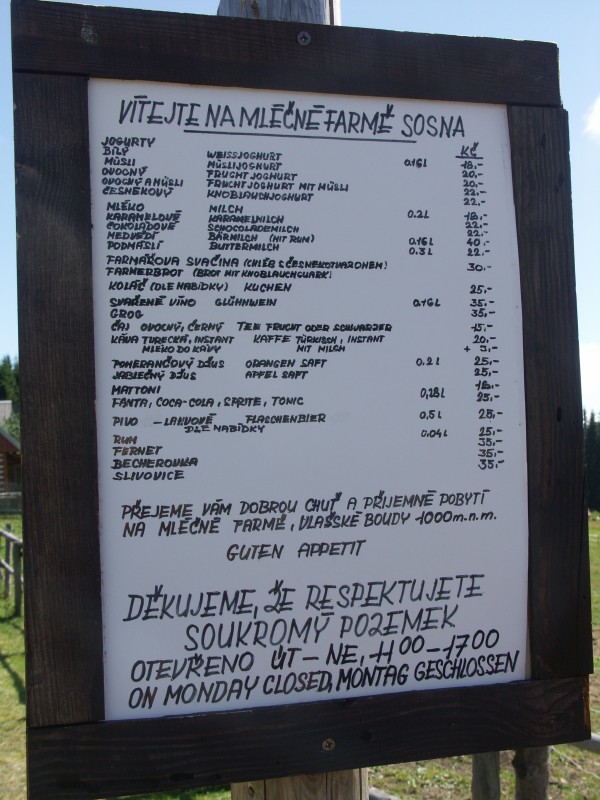 VÍTEJTE NA MLÉČNÉ FARMĚ SOSNA
JOGURTY KČ
BÍLÝ WEISSJOGHURT 0.16 L 18,-
MÜSLI MÜSLIJOGHURT 20,-
OVOCNÝ FRUCHTJOGHURT 20,-
OVOCNÝ A MÜSLI FRUCHTJOGHURT MIT MÜSLI 22,-
ČESNEKOVÝ KNOBLAUCHJOGHURT 22,-
MLÉKO MILCH 0.2 L 18,-
KARAMELOVÉ KARAMELMILCH 22,-
ČOKOLÁDOVÉ SCHOCOLADEMILCH 22,-
MEDVĚDÍ BÄRMILCH (MIT RUM) 0.16 L 40,-
PODMÁSLÍ BUTTERMILCH 0.3 L 22,-
FARMÁŘOVA SVAČINA (CHLÉB S ČESNEK.TVAROHEM)
FARMERBROT (BROT MIT KNOBLAUCHQUARK) 30,-
KOLÁČ (DLE NABÍDKY) KUCHEN 25,-
SVAŘENÉ VÍNO GLÜHNWEIN 0.16 L 35,-
GROG 35,-
ČAJ OVOCNÝ, ČERNÝ TEE FRUCHT ODER SCHWARZER 15,-
KÁVA TURECKÁ, INSTANT KAFFE TÜRKISCH, INSTANT 20,-
MLÉKO DO KÁVY MIT MILCH + 3,-
POMERANČOVÝ DŽUS ORANGEN SAFT 0.2 L 25,-
JABLEČNÝ DŽUS APFEL SAFT 25,-
MATTONI 18,-
FANTA, COCA-COLA, SPRITE, TONIC 0,28 L 25,-
PIVO - LAHVOVÉ FLASCHENBIER 0,5 L 25,-
DLE NABÍDKY
RUM 0.04 L 25,-
FERNET 35,-
BECHEROVKA 35,-
SLIVOVICE 35,-
PŘEJEME VÁM DOBROU CHUŤ A PŘÍJEMNÉ POBYTÍ
NA MLÉČNÉ FARMĚ, VLAŠSKÉ BOUDY 1000 m.n.m.
GUTEN APPETIT
DĚKUJEME, ŽE RESPEKTUJETE
SOUKROMÝ POZEMEK
OTEVŘENO ÚT - NE, 11 00 - 17 00
ON MONDAY CLOSED, MONTAG GESCHLOSSEN